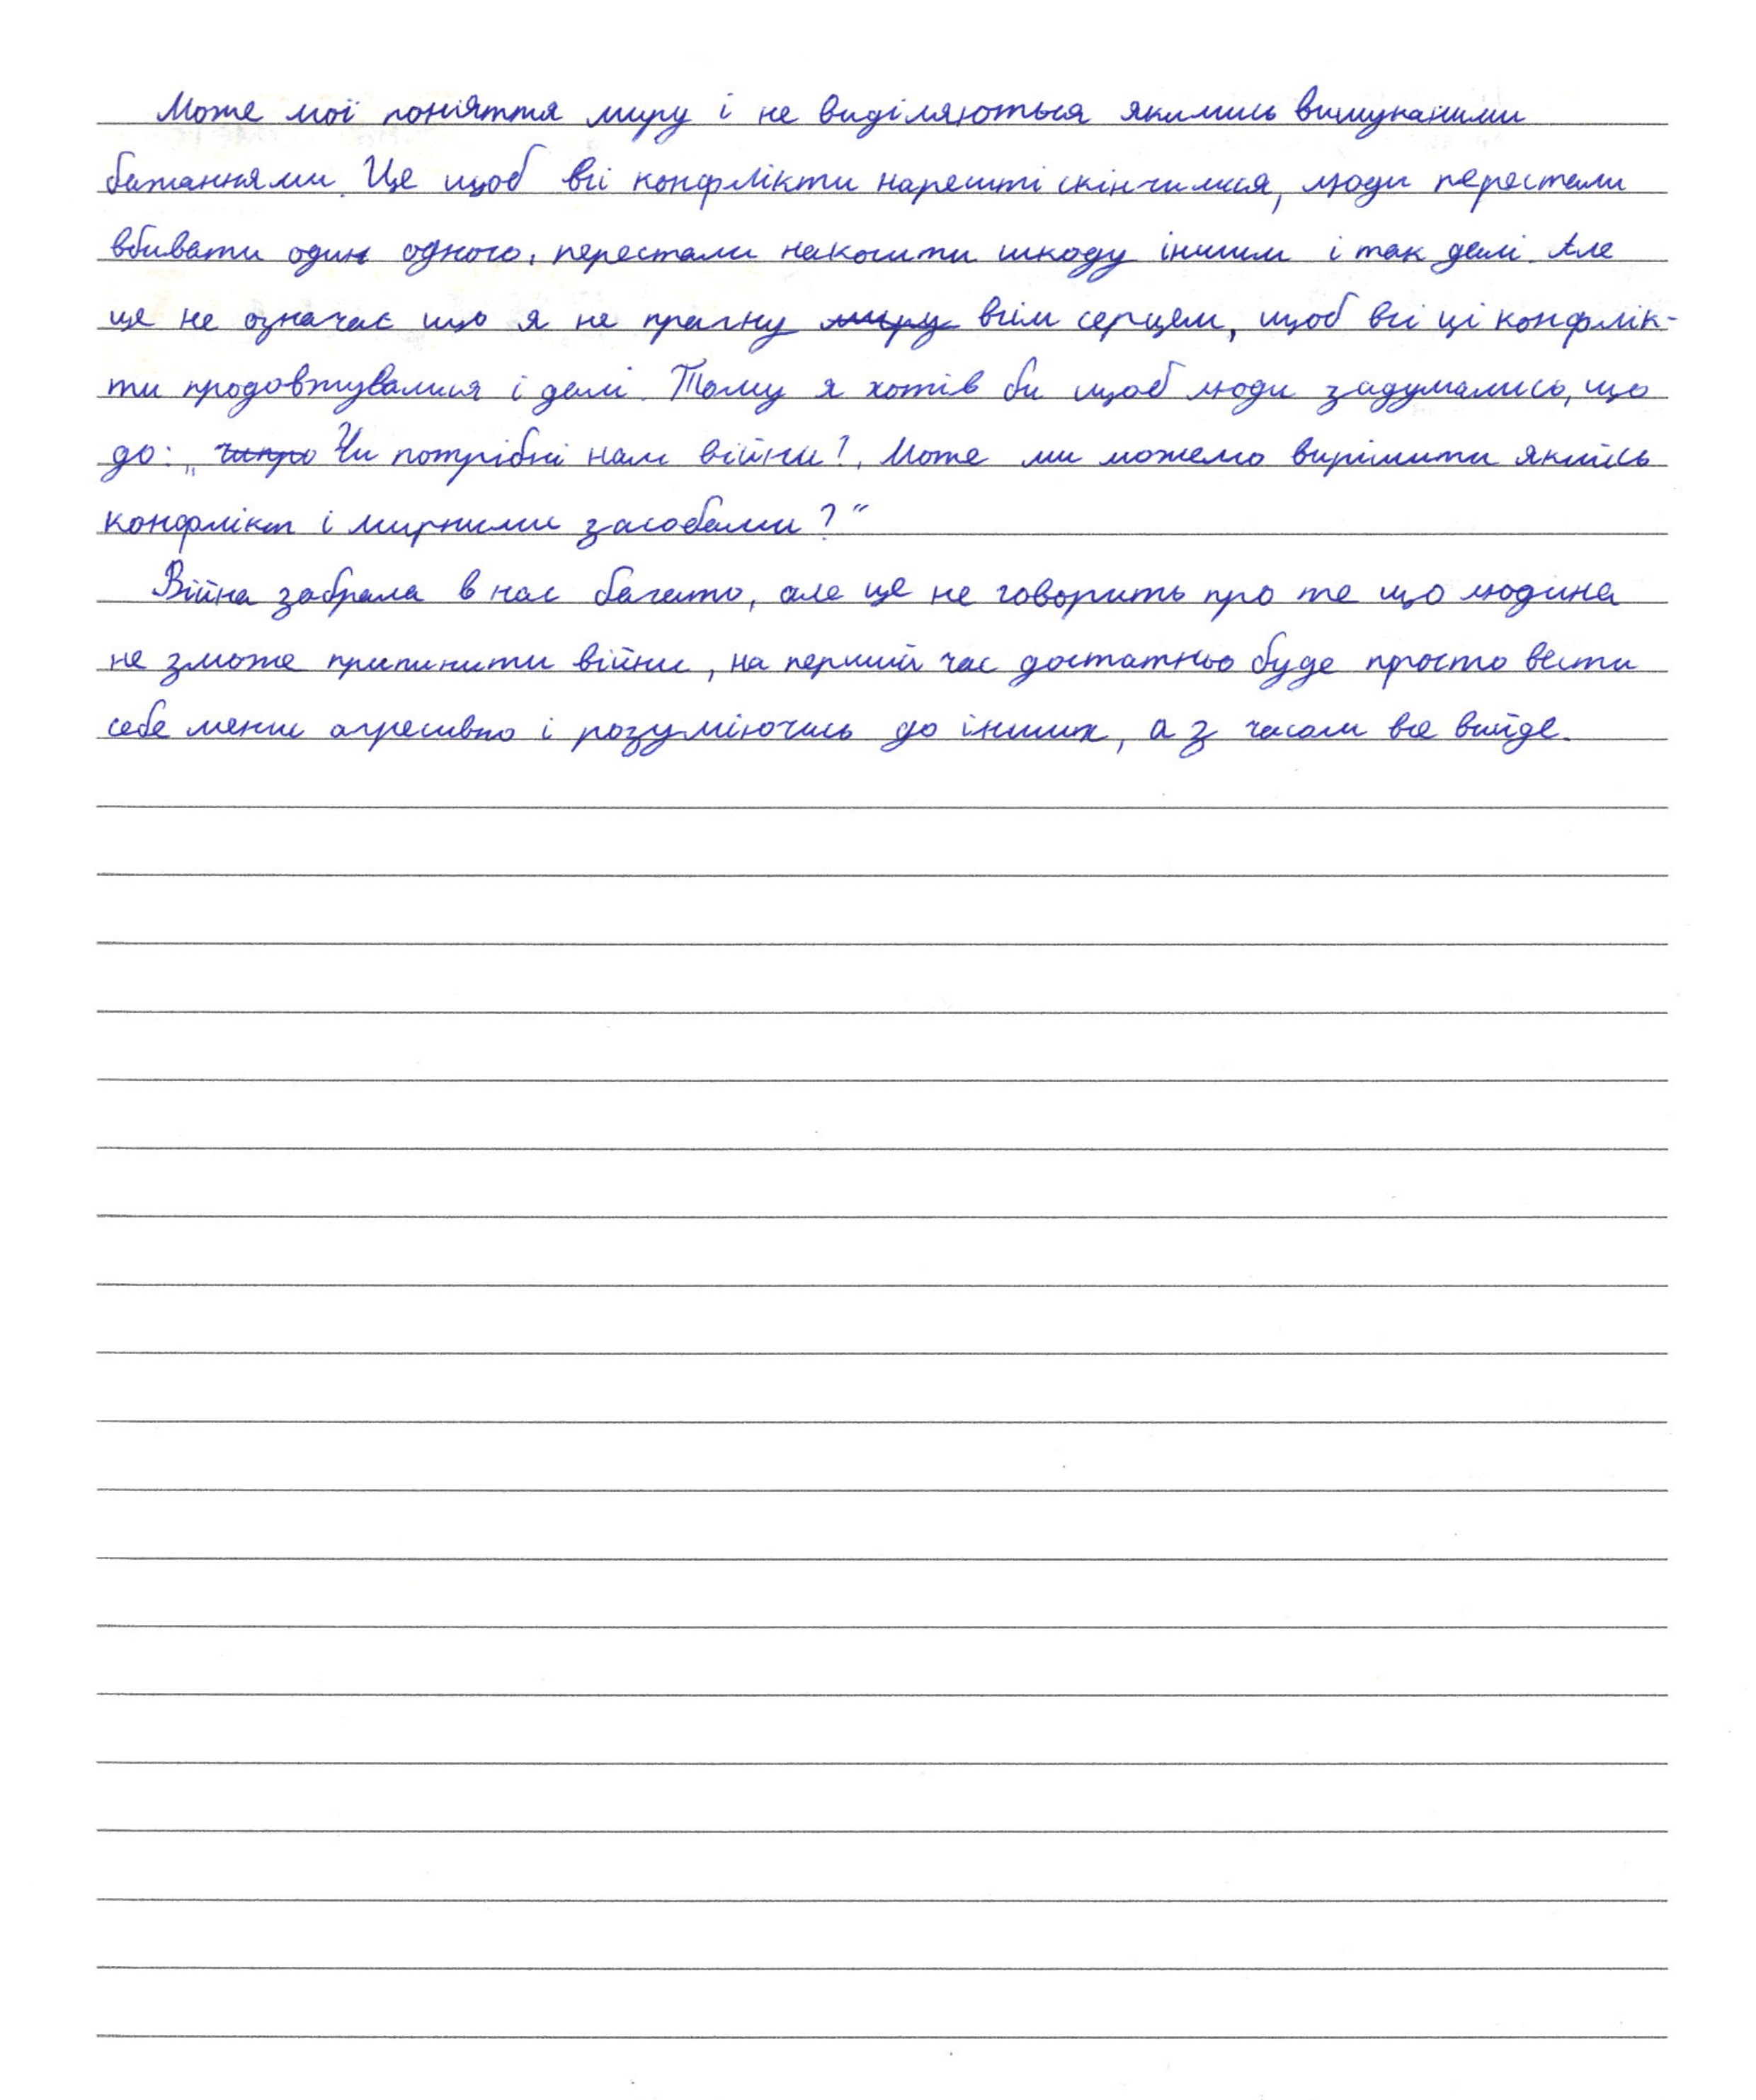 Може мої поняття миру і не виділяються якимись вишуканими
бажаннями. Це щоб всі конфлікти нарешті скінчилися, люди перестали
вбивати один одного, перестали накосити шкоду іншим і так далі. Але
це не означає що я не прагну миру всім серцем, щоб всі ці конфлік-
ти продовжувалися і далі. Тому я хотів би щоб люди задумались, що
до: „ Чи потрібні нам війни?, Може ми можемо вирішити якийсь
конфлікт і мирними засобами?“
Війна забрала в нас багато, але це не говорить про те що людина
не зможе припинити війни, на перший час достатньо буде просто вести
себе менш агресивно і розуміючись до інших, а з часом все вийде.